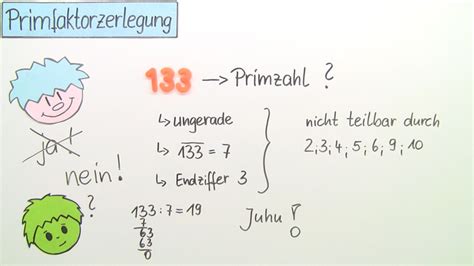 Primfaktorzerlegung
133 → Primzahl ?
ja!
nein!
?
↳ ungerade
↳ 133 = 7
↳ Endziffer 3
nicht teilbar durch
2;3;4;5;6;9;10
133:7=19
7
63
63
0
Juhu!